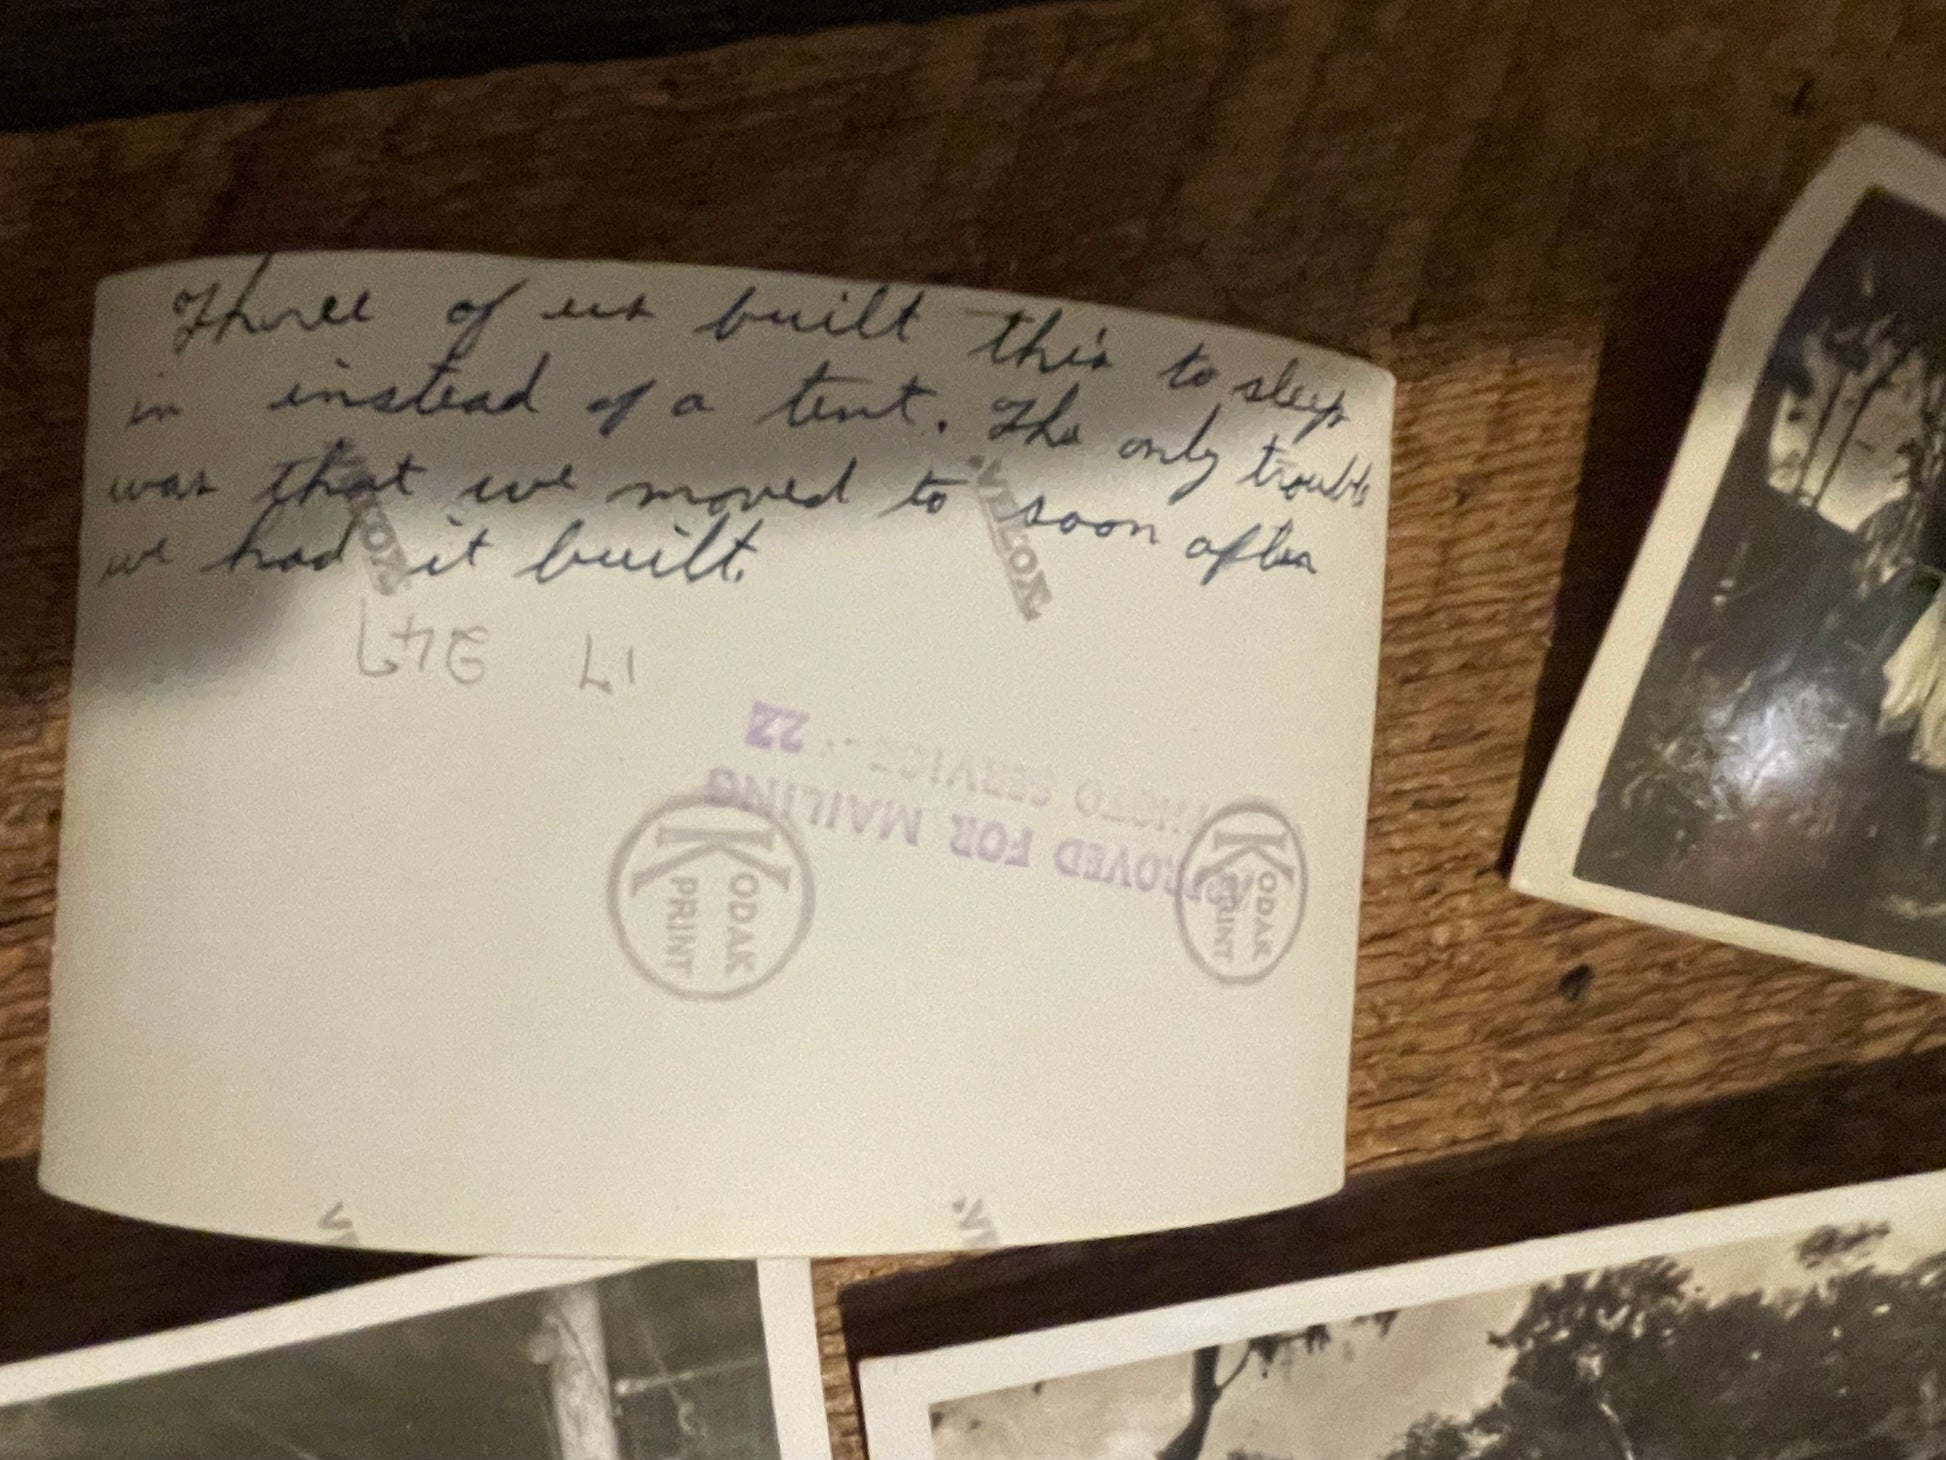 Three of us built this to sleep
in instead of a tent. The only trouble
was that we moved to soon after
we had it built.
VELOX
247 17
22
PHOTO SERVICE -
ROVED FOR MAILING
KODAK
PRINT
KODAK
PRINT